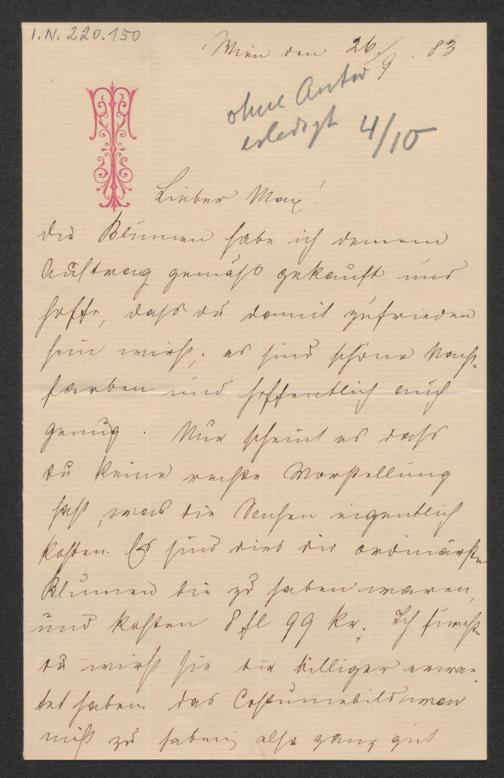 I.N. 220.150
Wien den 26/9. 83
ohne Antw
erledigt 4/10
T
Lieber Max!
die Blumen habe ich deinem
Auftrag gemäß gekauft und
hoffe, dass du damit zufrieden
sein wirst, es sind schöne
farben und hoffentlich auch
genug. Nur scheint es dass
du keine rechte Vorstellung
hast, was die Sachen eigentlich
kosten. Es sind dies die ordinärsten
Blumen die zu haben waren,
und kosten 8 fl 99 kr. Ich fürchte
du wirst sie dir billiger erwar
tet haben. das Costumebild war
nicht zu haben, also ganz gut